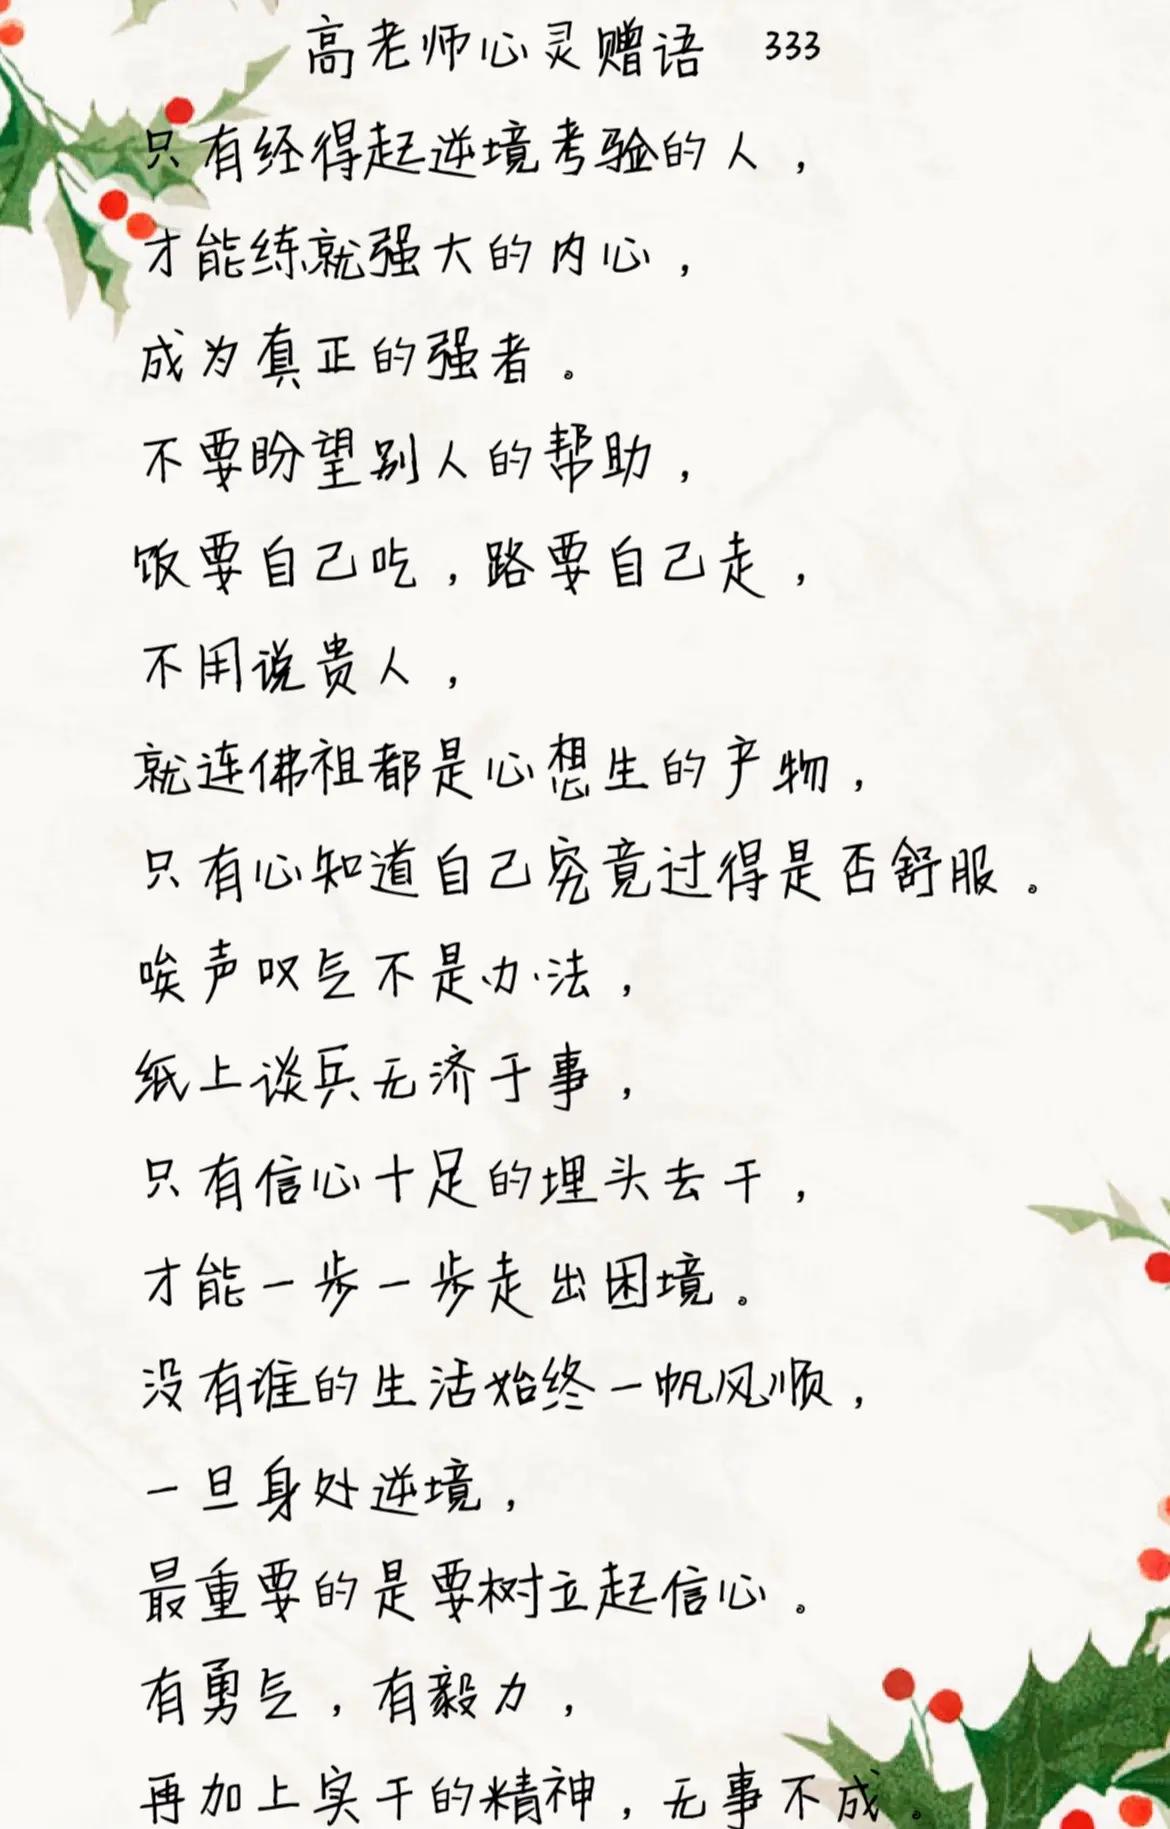 高老师心灵赠语 333
只有经得起逆境考验的人，
才能练就强大的内心，
成为真正的强者。
不要盼望别人的帮助，
饭要自己吃，路要自己走，
不用说贵人，
就连佛祖都是心想生的产物，
只有心知道自己究竟过得是否舒服。
唉声叹气不是办法，
纸上谈兵无济于事，
只有信心十足的埋头去干，
才能一步一步走出困境。
没有谁的生活始终一帆风顺，
一旦身处逆境，
最重要的是要树立起信心。
有勇气，有毅力，
再加上实干的精神，无事不成。